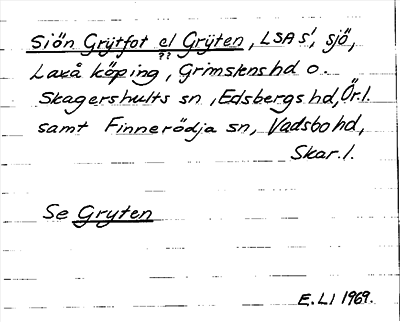 Siön Grÿtfot el Grÿten, LSA s', sjö,
??
Laxå köping, Grimstens hd o.
Skagershults sn, Edsbergs hd, Ör. l.
samt Finnerödja sn, Vadsbo hd,
Skar. l.
Se Gryten
E. LI 1969.